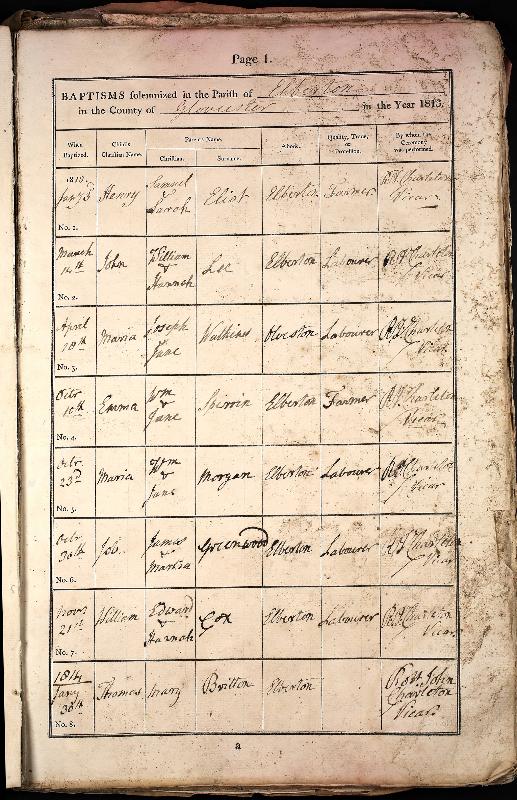 Page 1.
BAPTISMS solemnized in the Parish of Elberton
in the County of Gloucester in the Year 1813.
When Baptized.
Child's Christian Name.
Parents Name.
Christian.
Surname.
Abode.
Quality, Trade, or Profession.
By whom the Ceremony was performed.
1813.
Jany 3d
No. 1.
Henry
Samuel
&
Sarah
Eliot
Elberton
Farmer
R J Charleton
Vicar
March
14th
No. 2.
John
William
&
Hannah
Lee
Elberton
Labourer
R J Charleton
Vicar
April
18th
No. 3.
Maria
Joseph
Jane
Watkins
Olveston
Labourer
R J Charleton
Vicar
Octr
10th
No. 4.
Emma
Wm
&
Jane
Spirrin
Elberton
Farmer
R J Charleton
Vicar
Octr
23d
No. 5.
Maria
Wm
&
Jane
Morgan
Elberton
Labourer
R J Charleton
Vicar
Octr
30th
No. 6.
Job
James
&
Martha
Greenwood
Elberton
Labourer
R J Charleton
Vicar
Novr
21st
No. 7.
William
Edward
&
Hannah
Cox
Elberton
Labourer
R J Charleton
Vicar
1814
Jany
30th
No. 8.
Thomas
Mary
Britton
Elberton
Robt. John
Charleton
Vicar
a